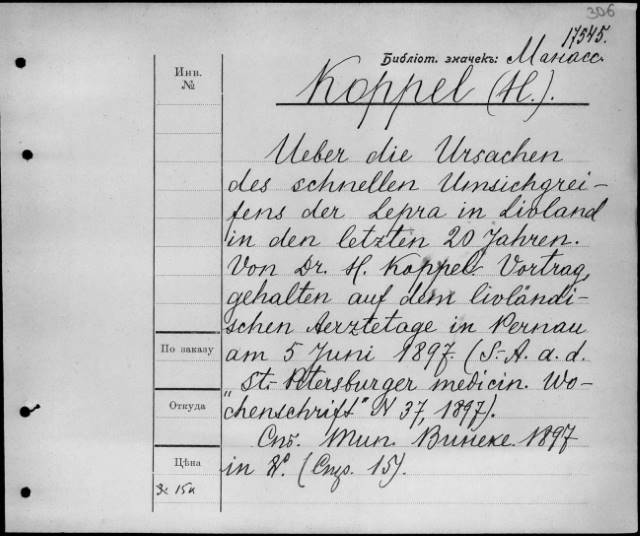 306
17545.
Библіот. значекъ: Манасс.
Инв.
№
Koppel (H.).
Ueber die Ursachen
des schnellen Umsichgrei-
fens der Lepra in Livland
in den letzten 20 Jahren.
Von Dr. H. Koppel. Vortrag,
gehalten auf dem livländi-
schen Aerztetage in Pernau
am 5 Juni 1897. (S.-A. a. d.
„St.-Petersburger medicin. Wo-
chenschrift" N 37, 1897).
Спб. Тип. Винеке. 1897
in 8°. (Стр. 15).
По заказу
Откуда
Цѣна
15к